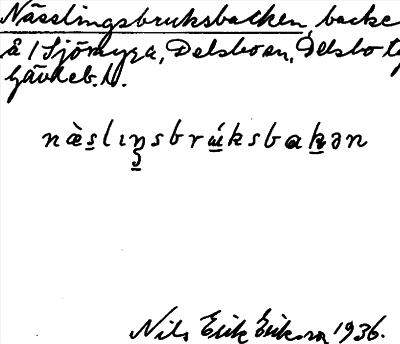 Nässlingsbruksbacken, backe
å / Sjömyra, Delsboån, Delsbo
Gävleb. l.
næ̀slɩŋsbrɯ́ksbakən
Nils Erik Eriksson 1936.